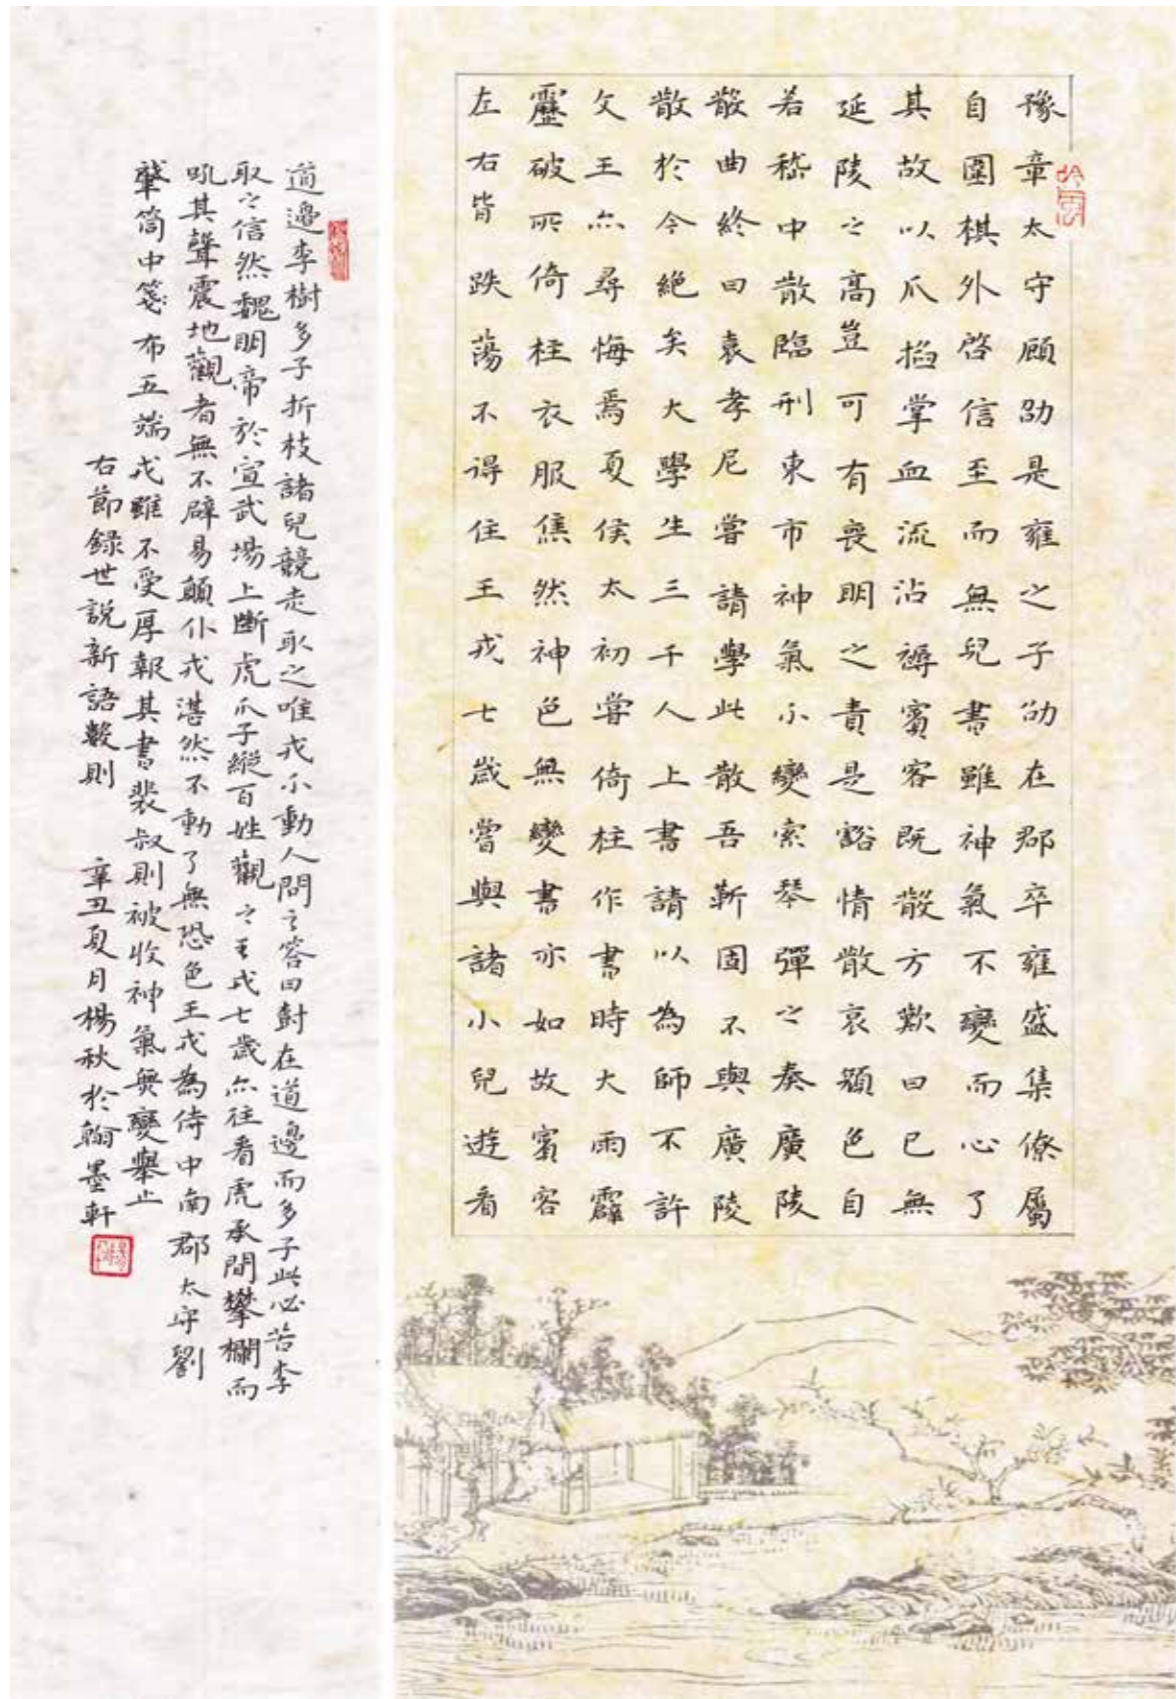 豫章太守顧劭是雍之子劭在郡卒雍盛集僚屬
自圍棋外啓信至而無兒書雖神氣不變而心了
其故以爪掐掌血流沾褥賓客既散方歎曰已無
延陵之高豈可有喪明之責是豁情散哀顏色自
若嵇中散臨刑東市神氣不變索琴彈之奏廣陵
散曲終曰袁孝尼嘗請學此散吾靳固不與廣陵
散於今絕矣大學生三千人上書請以為師不許
文王亦尋悔焉夏侯太初嘗倚柱作書時大雨霹
靂破所倚柱衣服焦然神色無變書亦如故賓客
左右皆跌蕩不得住王戎七歲嘗與諸小兒遊看
道邊李樹多子折枝諸兒競走取之唯戎不動人問之答曰樹在道邊而多子此必苦李
取之信然魏明帝於宣武場上斷虎爪子縱百姓觀之王戎七歲亦往看虎承間攀欄而
吼其聲震地觀者無不辟易顛仆戎湛然不動了無恐色王戎為侍中南郡太守劉
肇筒中箋布五端戎雖不受厚報其書裴叔則被收神氣無變舉止
右節錄世說新語數則 辛丑夏月楊秋於翰墨軒